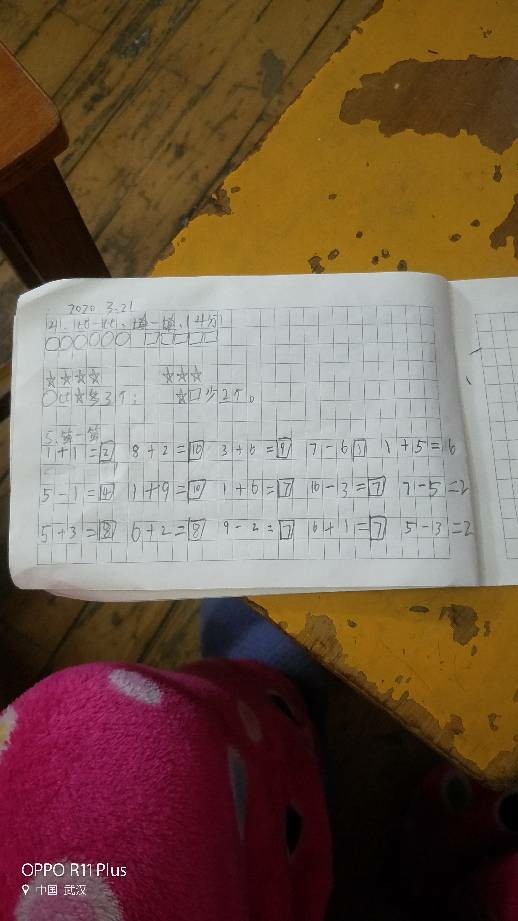 2020 3.21
4. 比一比、填一填、(4分)
○○○○○○ □□□□
☆☆☆☆ ☆☆☆
○比☆多3个; ☆□少2个。
5.算一算
1+1=2 8+2=10 3+6=9 7-6 1 1+5=6
5-1=4 1+9=10 1+6=7 10-3=7 7-5=2
5+3=8 6+2=8 9-2=7 6+1=7 5-3=2
OPPO R11 Plus
中国 武汉